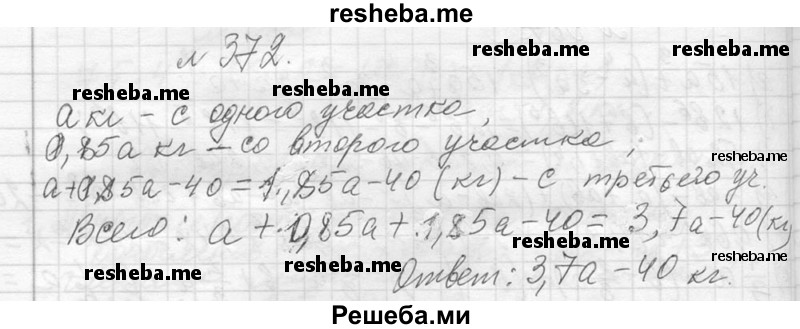 resheba.me
№ 372. resheba.me resheba.me
resheba.me
а кг – с одного участка,
0,85а кг – со второго участка;
resheba.me
а+0,85а–40=1,85а–40(кг)– с третьего уч.
resheba.me
Всего: а+0,85а+1,85а–40= 3,7а–40(кг)
resheba.me
resheba.me resheba.me
Ответ: 3,7а – 40 кг.
resheba.me
Решеба.ми